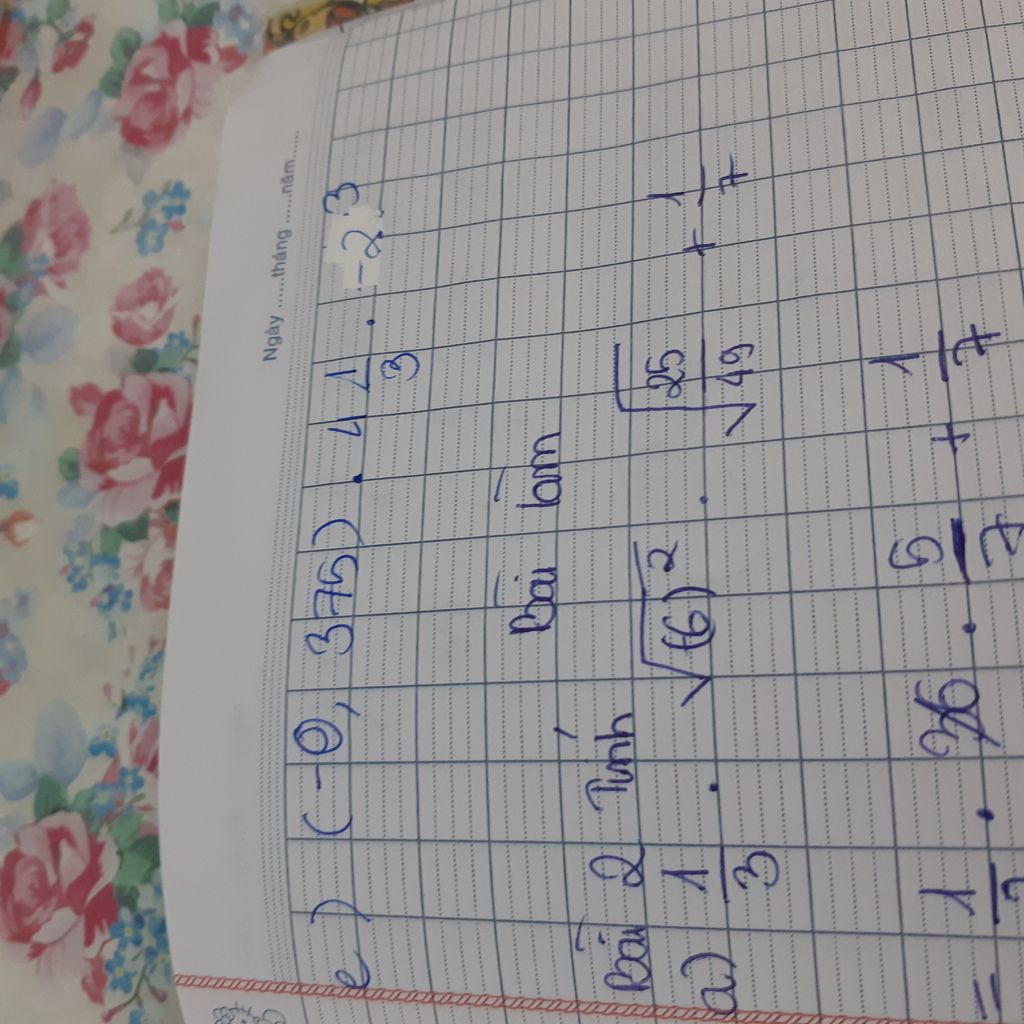 Ngày ......tháng ......năm......
e) (-0, 375) . 4 1/3 . -2 3
Bài làm
Bài 2 Tính
a) 1/3 . √(6)² . √25/49 + 1/7
= 1/3 . . 5/7 + 1/7